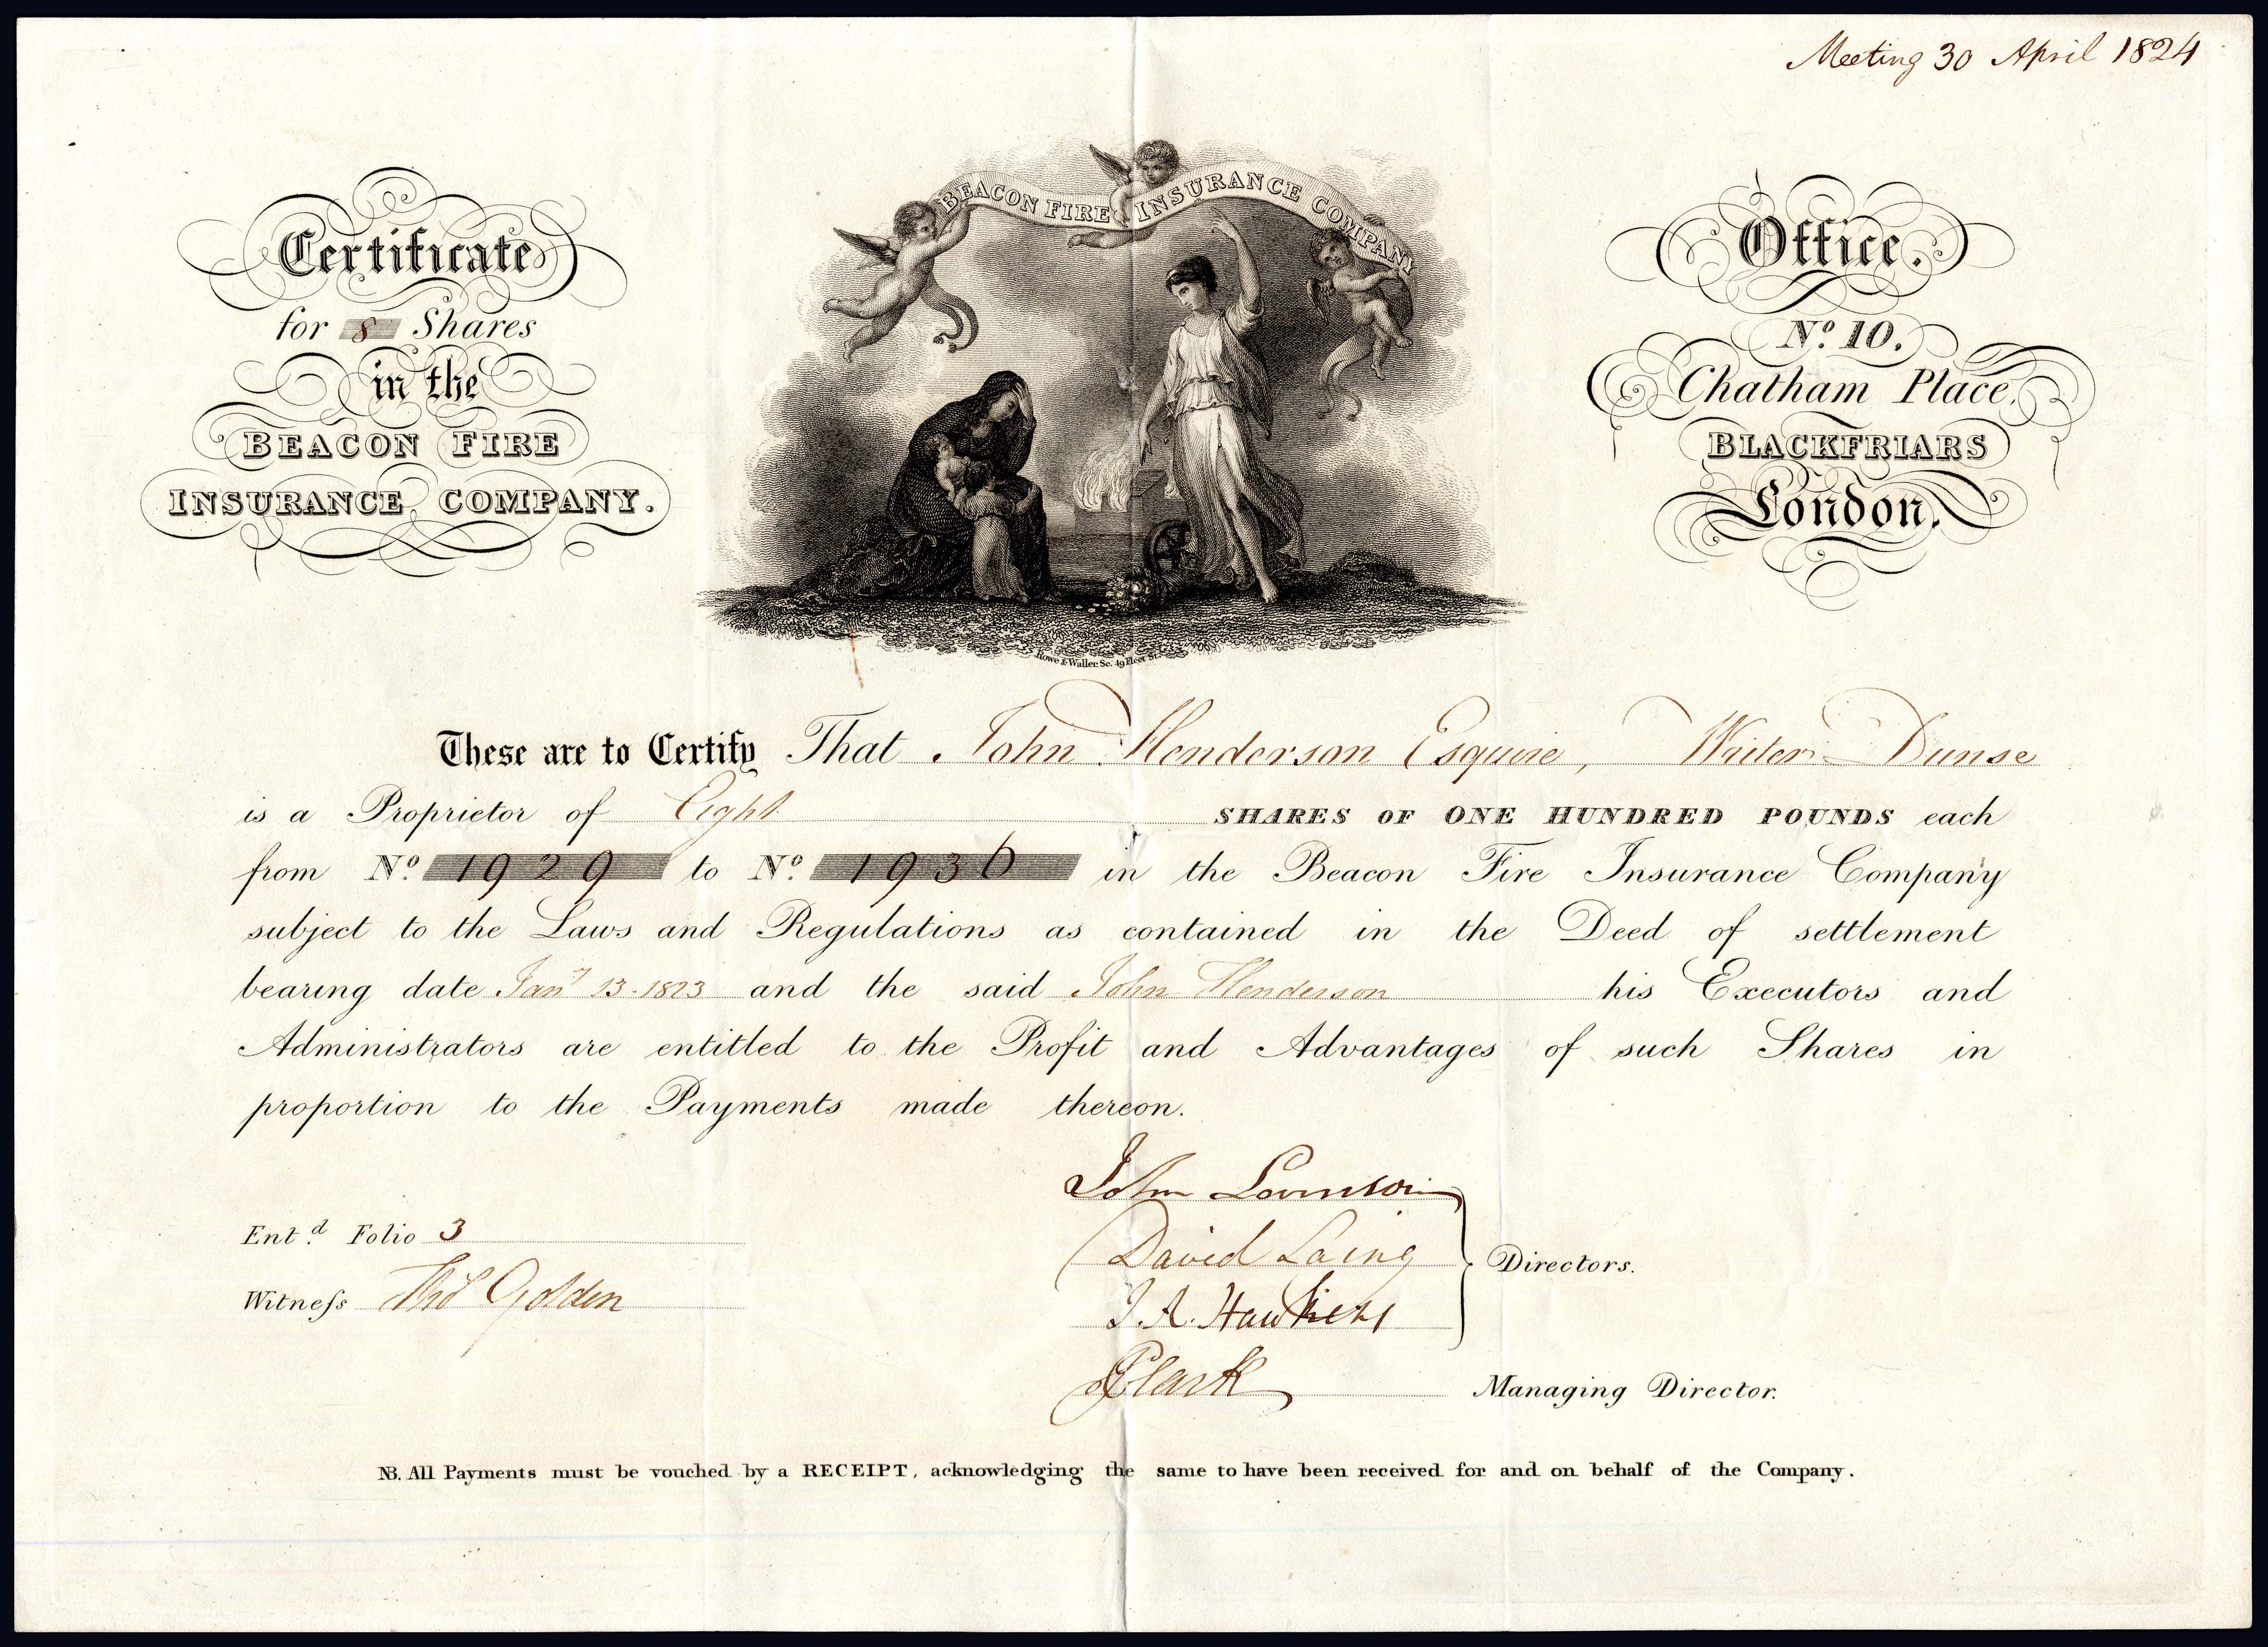 Meeting 30 April 1824
Certificate
for 8 Shares
in the
BEACON FIRE
INSURANCE COMPANY.
BEACON FIRE INSURANCE COMPANY
Office.
No. 10.
Chatham Place,
BLACKFRIARS
London.
Rowe & Waller Sc. 49 Fleet St.
These are to Certify That John Henderson Esquire, Writer Dunse
is a Proprietor of Eight SHARES OF ONE HUNDRED POUNDS each
from No. 1929 to No. 1936 in the Beacon Fire Insurance Company
subject to the Laws and Regulations as contained in the Deed of settlement
bearing date Jany 13. 1823 and the said John Henderson his Executors and
Administrators are entitled to the Profit and Advantages of such Shares in
proportion to the Payments made thereon.
John
David Laing
J. A. Hawkins
Directors.
Entd. Folio 3
Witneſs Thos Golden
Clark Managing Director.
NB. All Payments must be vouched by a RECEIPT, acknowledging the same to have been received for and on behalf of the Company.